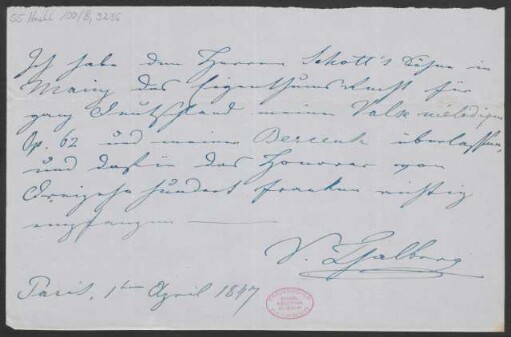 55 Nachl 100/B, 3236
Ich habe den Herren Schott's Söhne in
Mainz das Eigenthumsrecht für
ganz Deutschland meiner Valse mélodique
Op. 62 und meiner Berceuse überlassen,
und dafür das Honorar von
Dreizehn hundert Franken richtig
empfangen
S. Thalberg
Paris, 1ten April 1847